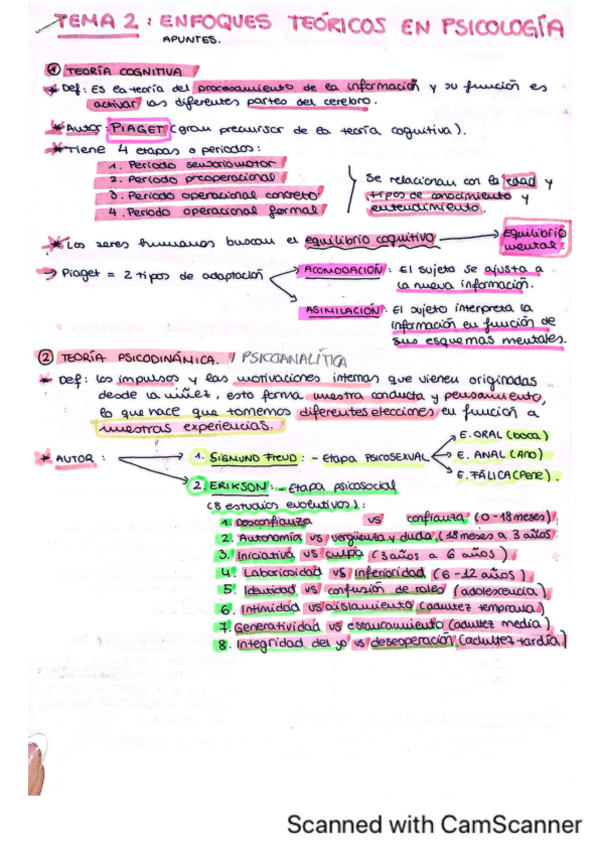 TEMA 2: ENFOQUES TEÓRICOS EN PSICOLOGÍA
APUNTES.
① TEORÍA COGNITIVA
* Def: Es la teoría del procesamiento de la información y su función es
activar las diferentes partes del cerebro.
* Autor: PIAGET (gran precursor de la teoría cognitiva).
* Tiene 4 etapas o periodos:
1. Periodo sensoriomotor
2. Periodo preoperacional
3. Periodo operacional concreto
4. Periodo operacional formal
Se relacionan con la edad y
tipos de conocimiento y
entendimiento.
* Los seres humanos buscan el equilibrio cognitivo → equilibrio
mental.
→ Piaget = 2 tipos de adaptación
ACOMODACIÓN: El sujeto se ajusta a
la nueva información.
ASIMILACIÓN: El sujeto interpreta la
información en función de
sus esquemas mentales.
② TEORÍA PSICODINÁMICA. / PSICOANALÍTICA
* Def: los impulsos y las motivaciones internas que vienen originadas
desde la niñez, esto forma nuestra conducta y pensamiento,
lo que hace que tomemos diferentes elecciones en función a
nuestras experiencias.
* AUTOR:
1. SIGMUND FREUD: - Etapa PSICOSEXUAL
E. ORAL (boca)
E. ANAL (Ano)
E. FÁLICA (Pene).
2. ERIKSON: - Etapa psicosocial
(8 estudios evolutivos):
1. Desconfianza vs confianza (0-18 meses)
2. Autonomía vs vergüenza y duda (18 meses a 3 años
3. Iniciativa vs culpa (3 años a 6 años)
4. Laboriosidad vs inferioridad (6-12 años)
5. Identidad vs confusión de roles (adolescencia)
6. Intimidad vs aislamiento (adultez temprana)
7. Generatividad vs estancamiento (adultez media)
8. Integridad del yo vs desesperación (adultez tardía)
Scanned with CamScanner